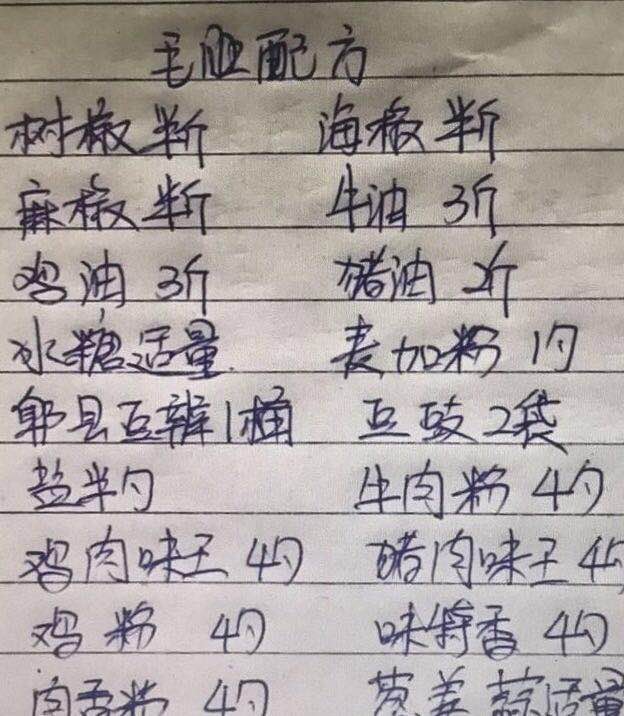 毛血配方
树椒 半斤 海椒 半斤
麻椒 半斤 牛油 3斤
鸡油 3斤 猪油 2斤
水糖适量 麦加粉 1勺
郫县豆瓣1桶 豆豉2袋
盐半勺 牛肉粉 4勺
鸡肉味王 4勺 猪肉味王 4勺
鸡粉 4勺 味特香 4勺
肉香粉 4勺 葱姜蒜适量